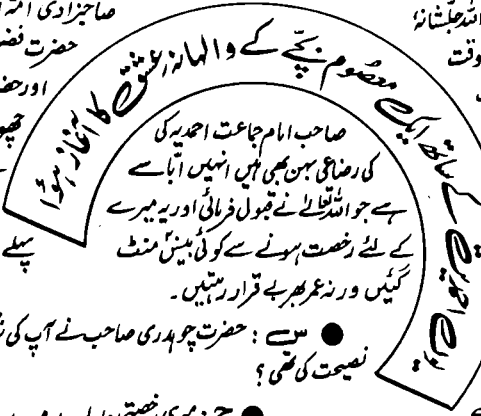 صاحبزادی امۃ
حضرت
اور حضر
اللہ جلّشانہٗ
وقت
کے ساتھ ایک معصوم بچّے کے والہانہ عشق کا آغاز ہوُا
صاحب امام جماعت احمدیہ کی
کی رضاعی بہن بھی ہیں انہیں ابّا سے
ہے جو اللہ تعالےٰ نے قبول فرمائی اور یہ میرے
کے لئے رخصت ہونے سے کوئی بیس منٹ
گئیں ورنہ عمر بھر بے قرار رہتیں۔
پہلے
● س : حضرت چوہدری صاحب نے آپ کی
نصیحت کی تھی ؟
● ج : میری رخصتی